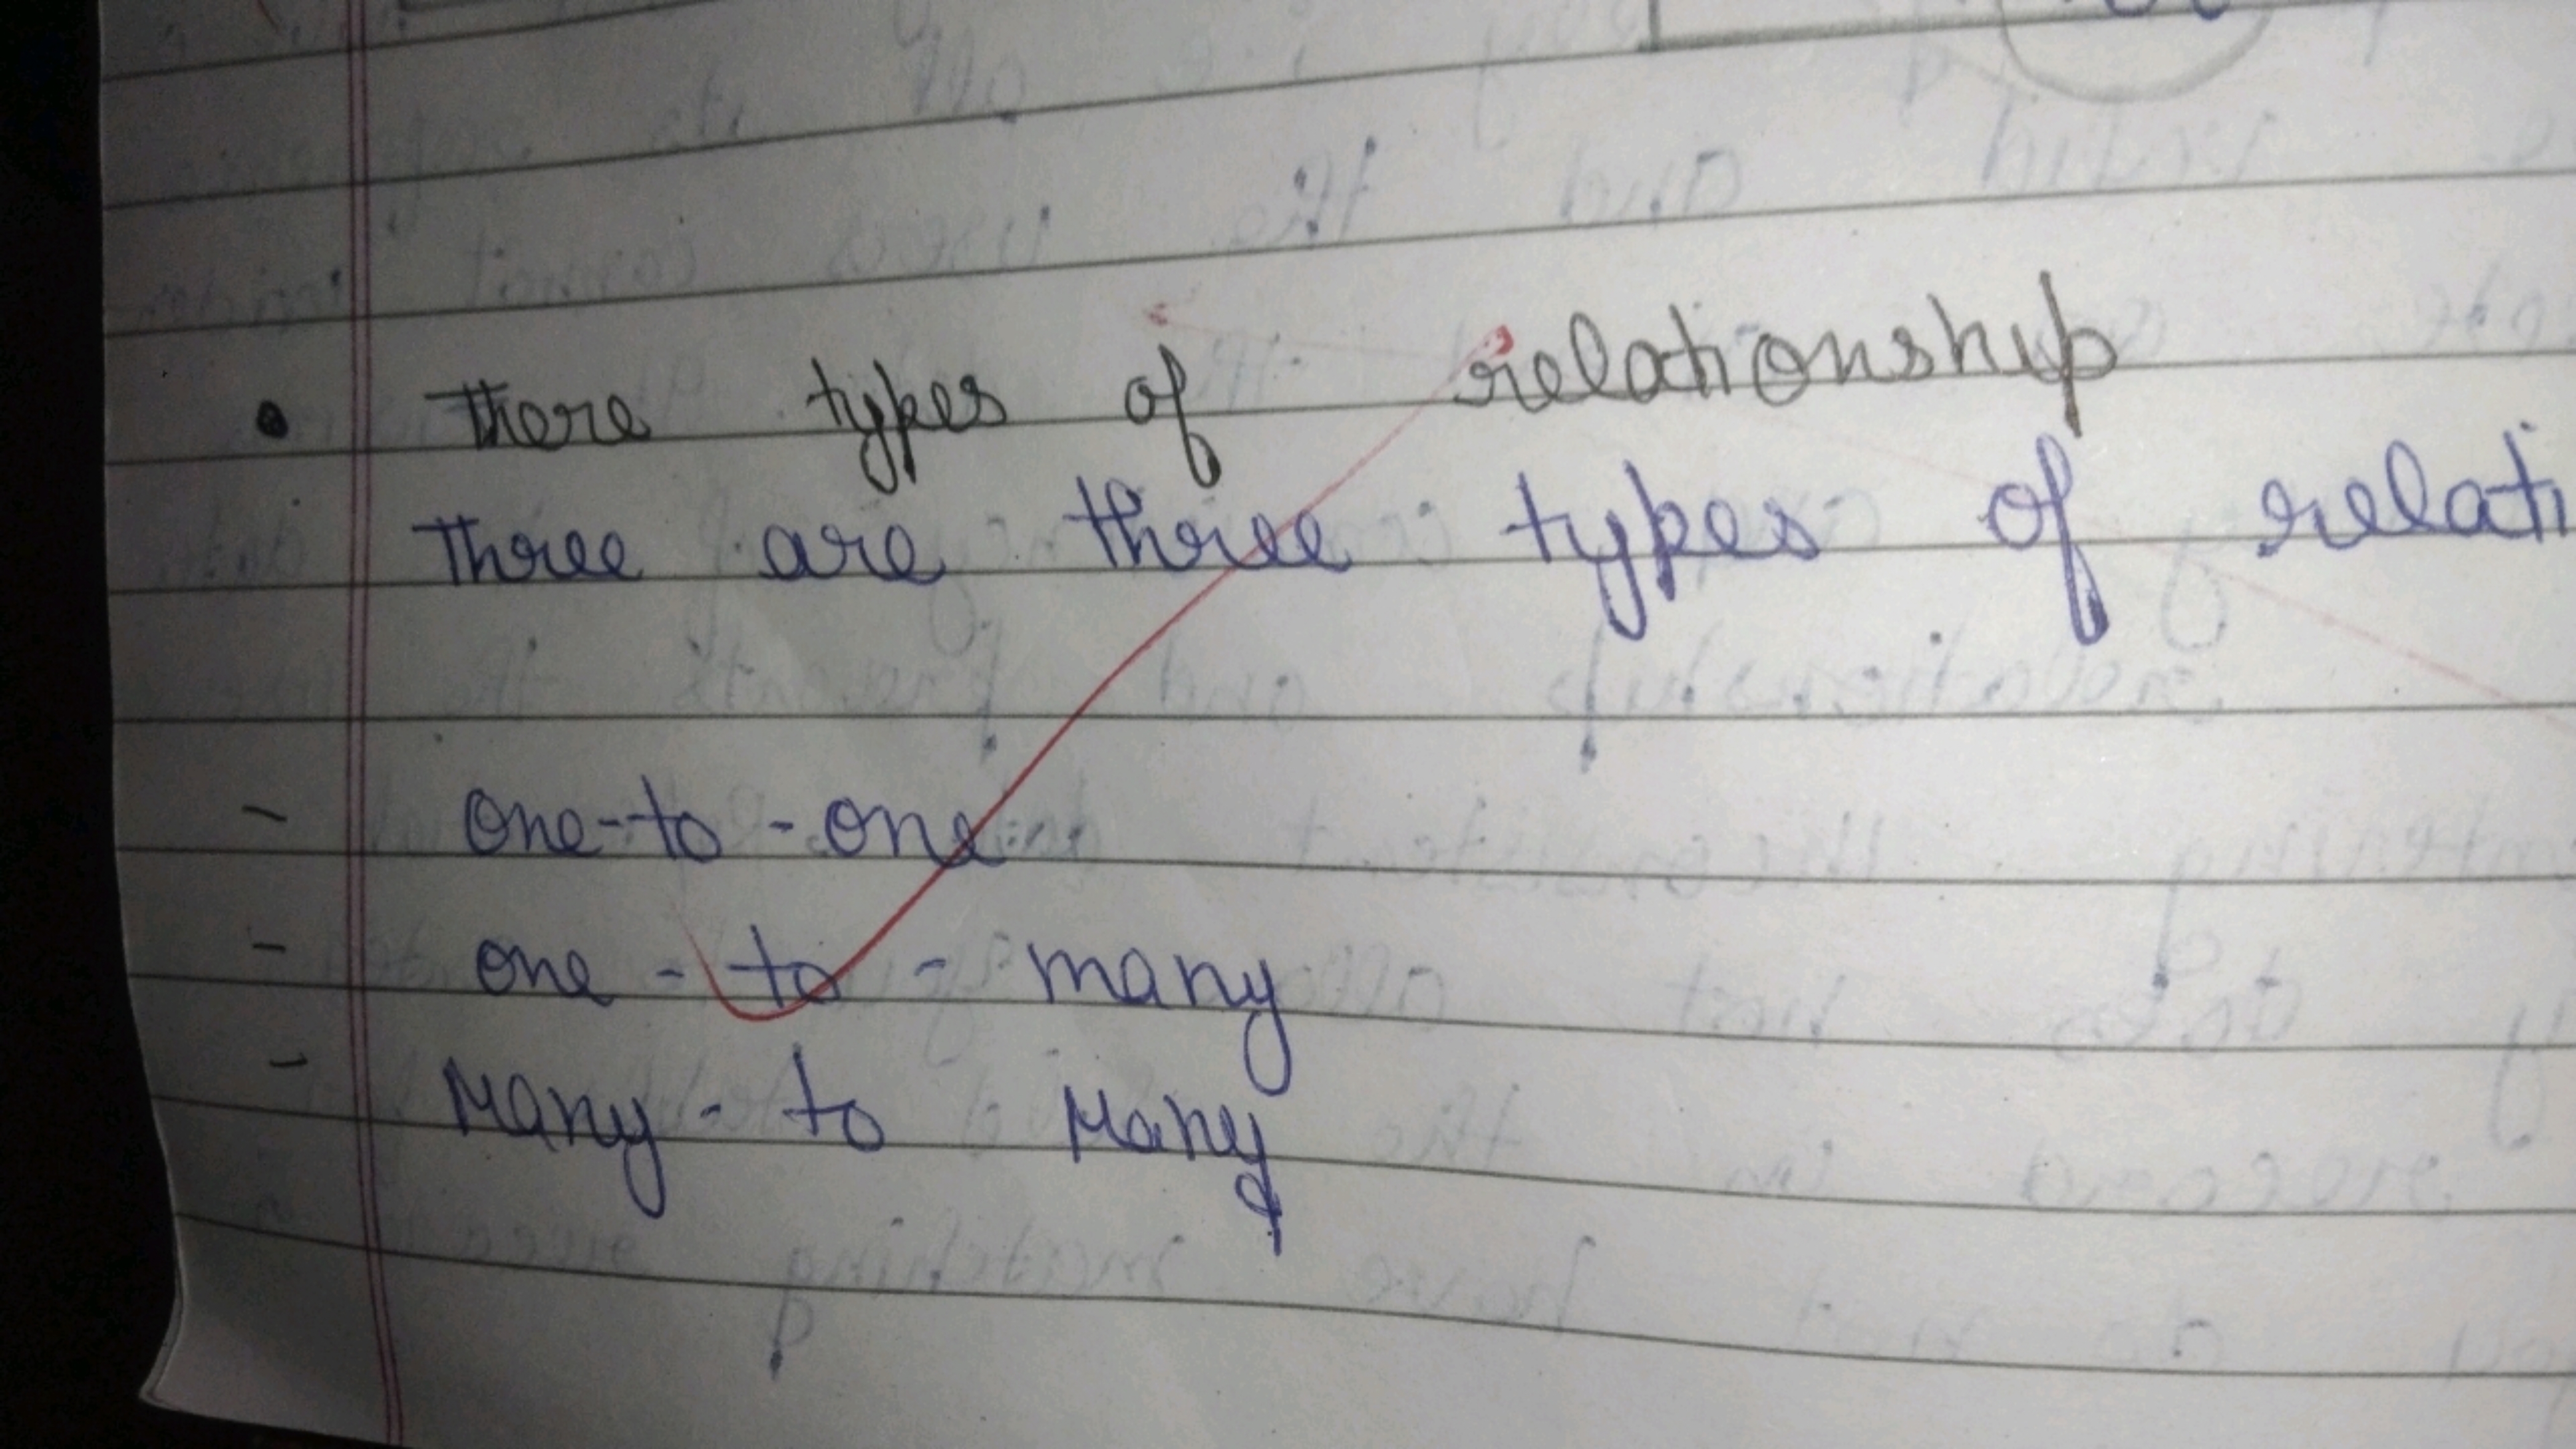 • There types of relationship
Three are three types of relati
- One-to-one
- one-to-many
- Many-to Many